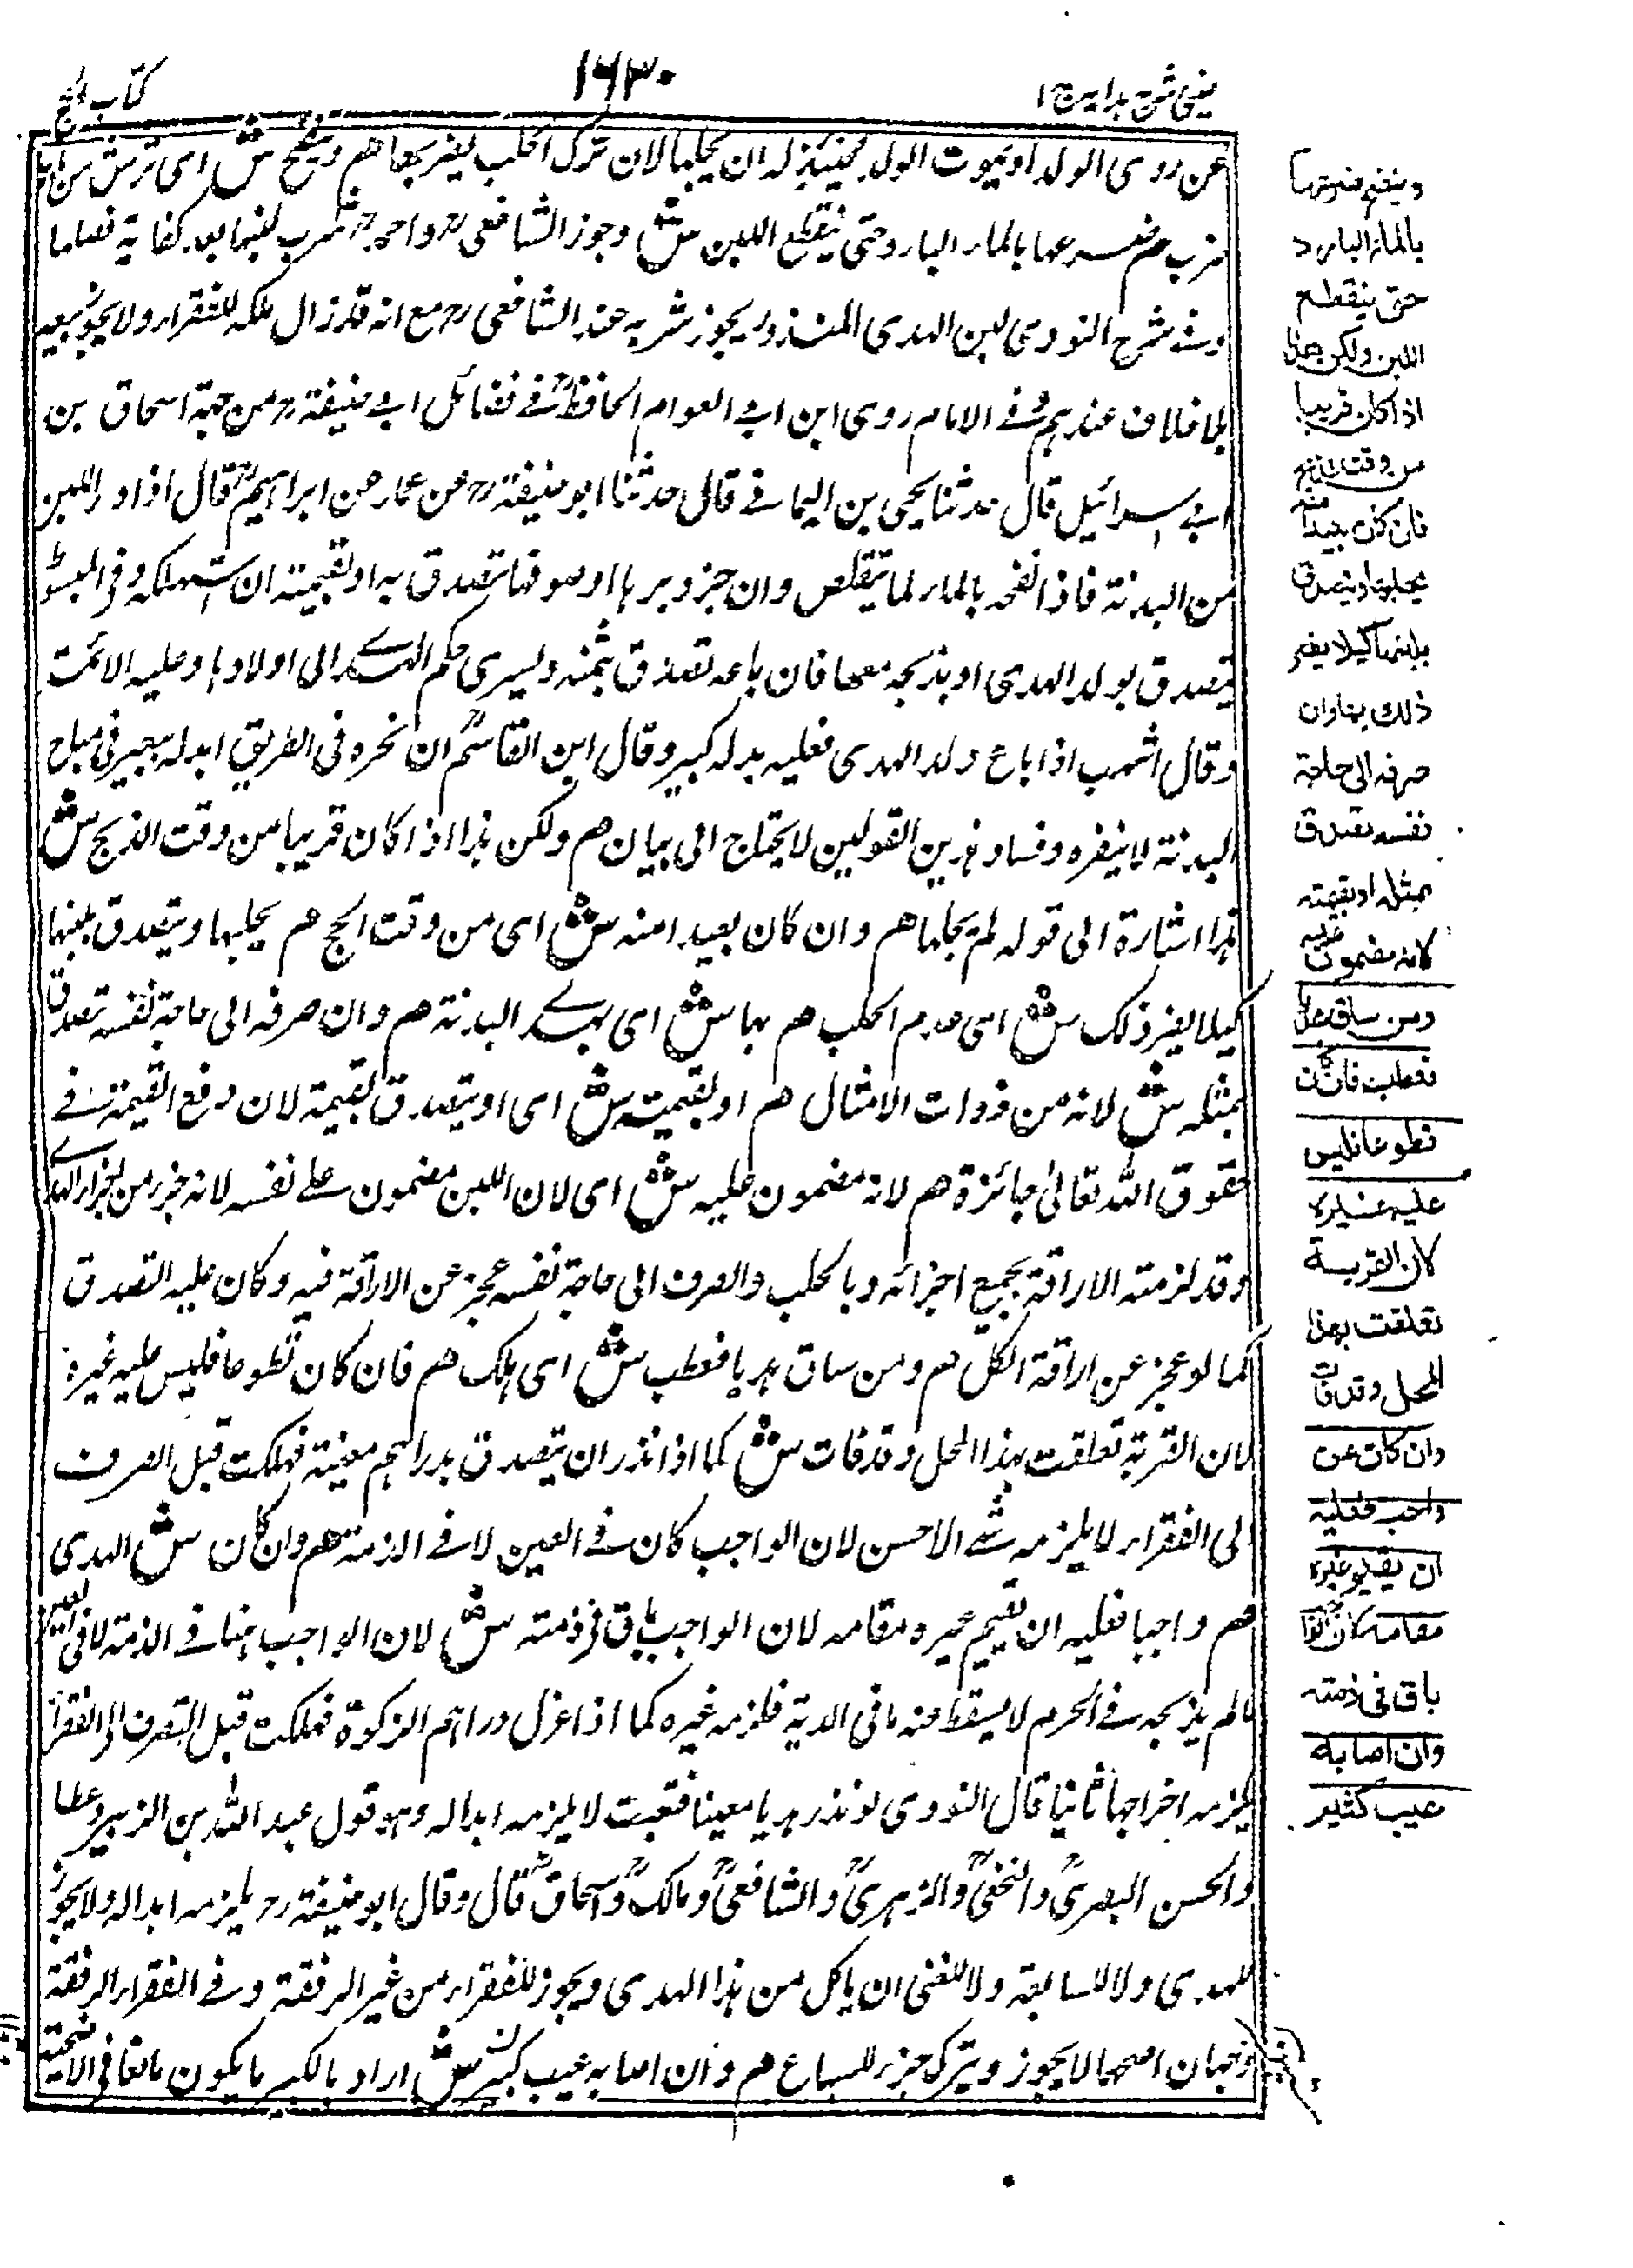 كتاب الحج
١٦٣٠
عيني شرح هداية ج ١
عن روى الولد او يموت الولد فحينئذ له ان يحلبها لان ترك الحلب يضر بها هم وينضح ش اى ترش من
ضرب هم ضرعها بالماء البارد حتى ينقطع اللبن ش وجوز الشافعى رح واحمد رح شرب لبنها بعد كفاية فصلها
وفى شرح النووى لبن الهدى المنذور يجوز شربه عند الشافعى رح مع انه قد زال ملكه للفقراء ولا يجوز بيعه
بلا خلاف عندهم وفى الامام روى ابن ابى العوام الحافظ فى فضائل ابى حنيفة رح من جهة اسحاق بن
ابى اسرائيل قال حدثنا يحيى بن اليمانى قال حدثنا ابو حنيفة رح عن حماد عن ابراهيم رح قال اذا در اللبن
من البدنة فاذا انضحه بالماء لما يتقلص وان جز وبرها او صوفها تصدق به او بقيمته ان استهلكه وفى المبسوط
يتصدق بولد الهدى او يذبحه معها فان باعه تصدق بثمنه ويسرى حكم الهدى الى اولادها وعليه الائمة
وقال اشهب اذا باع ولد الهدى فعليه بدله كبير وقال ابن القاسم رح ان نحره فى الطريق ابدله ببعير فى مباح
البدنة لا ينفره وفساد هذين القولين لا يحتاج الى بيان هم ولكن هذا اذا كان قريبا من وقت الذبح ش
هذا اشارة الى قوله لم يحلبها هم وان كان بعيدا منه ش اى من وقت الحج هم يحلبها ويتصدق بلبنها
كيلا يضر ذلك ش اى عدم الحلب هم بها ش اى بهذه البدنة هم وان صرفه الى حاجة نفسه تصدق
بمثله ش لانه من ذوات الامثال هم او بقيمته ش اى او يتصدق بقيمة لان دفع القيمة فى
حقوق الله تعالى جائزة هم لانه مضمون عليه ش اى لان اللبن مضمون على نفسه لانه جزء من اجزاء الهدى
وقد لزمته الاراقة بجميع اجزائه وبالحلب والصرف الى حاجة نفسه عجز عن الاراقة فيه وكان عليه التصدق
كما لو عجز عن اراقة الكل هم ومن ساق هديا فعطب ش اى هلك هم فان كان تطوعا فليس عليه غيره
لان القربة تعلقت بهذا المحل وقد فات ش كما اذا نذر ان يتصدق بدراهم معينة فهلكت قبل الصرف
الى الفقراء لا يلزمه شئ الاحسن لان الواجب كان فى العين لا فى الذمة هم وان كان ش الهدى
هم واجبا فعليه ان يقيم غيره مقامه لان الواجب باق فى ذمته ش لان الواجب هنا فى الذمة لا فى العين
مالم يذبحه فى الحرم لا يسقط عنه ما فى الذمة فلزمه غيره كما اذا عزل دراهم الزكوة فهلكت قبل التصرف الى الفقراء
يلزمه اخراجها ثانيا قال النووى لو نذر هديا معينا فتعيبت لا يلزمه ابداله وهو قول عبد الله بن الزبير وعطا
والحسن البصرى رح والنخعى رح والزهرى رح والشافعى رح ومالك رح واسحاق رح قال وقال ابو حنيفة رح يلزمه ابداله ولا يجوز
للهدى ولا للسابقة ولا للغنى ان ياكل من هذا الهدى ويجوز للفقراء من غير الرفقة وفى الفقراء الرفقة
وجهان اصحهما لا يجوز ويترك جزر للسباع هم وان اصابه عيب كبير ش اراد بالكبير ما يكون مانعا فى الاضحية
وينضح ضرعها
بالماء البارد
حتى ينقطع
اللبن ولكن هذا
اذا كان قريبا
من وقت الذبح
فان كان بعيدا منه
يحلبها ويتصدق
بلبنها كيلا يضر
ذلك بها وان
صرفه الى حاجة
نفسه تصدق
بمثله او بقيمته
لانه مضمون عليه
ومن ساق هديا
فعطب فان كان
تطوعا فليس
عليه غيره
لان القربة
تعلقت بهذا
المحل وقد فات
وان كان عن
واجب فعليه
ان يقيم غيره
مقامه لان الواجب
باق فى ذمته
وان اصابه
عيب كثير